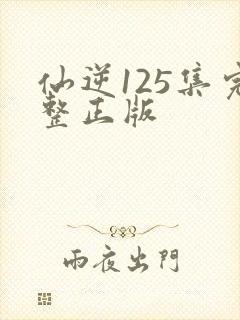 仙逆125集完
整正版
雨夜出門